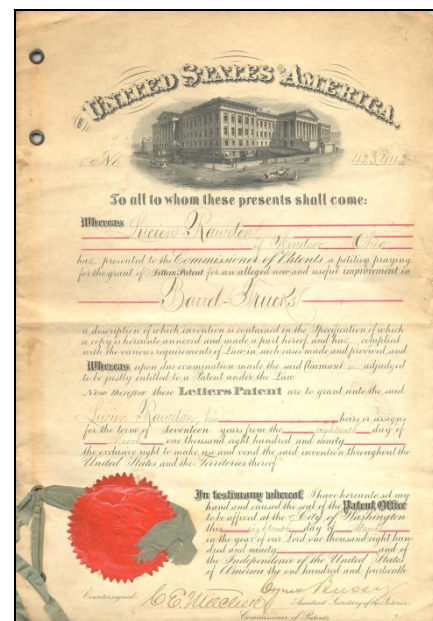 THE UNITED STATES OF AMERICA,
No. 423,442
To all to whom these presents shall come:
Whereas Lucien Rawdon,
of Windsor, Ohio
has presented to the Commissioner of Patents a petition praying
for the grant of Letters Patent for an alleged new and useful improvement in
Barrel-Trucks
a description of which invention is contained in the Specification of which
a copy is hereunto annexed and made a part hereof, and has complied
with the various requirements of Law in such cases made and provided, and
Whereas upon due examination made the said Claimant is adjudged
to be justly entitled to a Patent under the Law.
Now therefore these Letters Patent are to grant unto the said
Lucien Rawdon, his heirs or assigns
for the term of Seventeen years from the eighteenth day of
March one thousand eight hundred and ninety
the exclusive right to make, use and vend the said invention throughout the
United States and the Territories thereof.
In testimony whereof I have hereunto set my
hand and caused the seal of the Patent Office
to be affixed at the City of Washington
this eighteenth day of March
in the year of our Lord one thousand eight hun-
dred and ninety and of
the Independence of the United States
of America the one hundred and fourteenth.
Cyrus Bussey
Countersigned C.E. Mitchell Assistant Secretary of the Interior.
Commissioner of Patents.